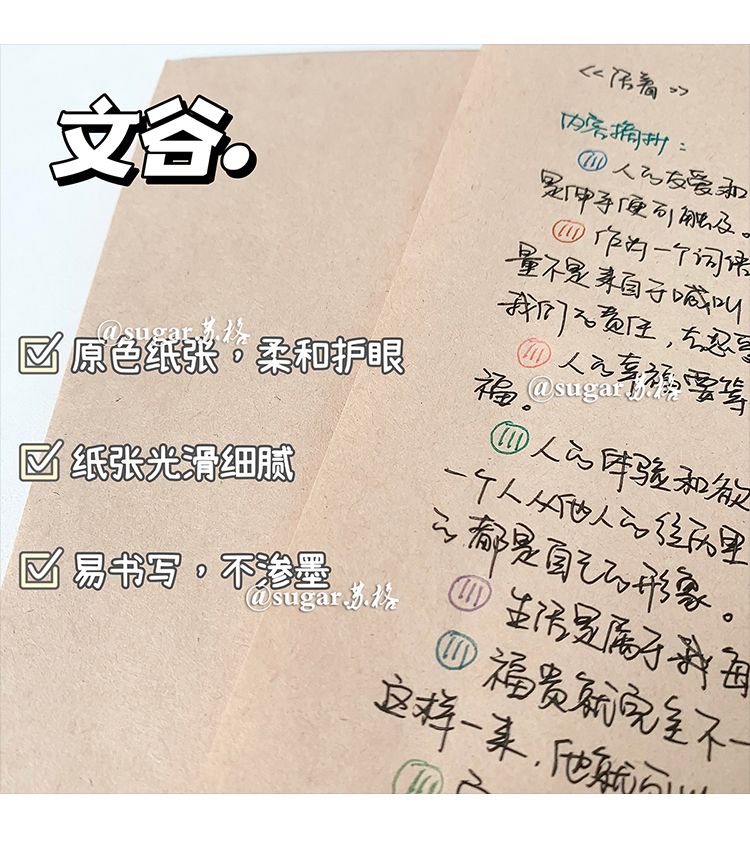 文谷.
@sugar苏格
原色纸张，柔和护眼
纸张光滑细腻
易书写，不渗墨
@sugar苏格
《活着》
内容摘抄：
人的友爱和
是伸手便可触及。
作为一个词语
量不是来自于喊叫
我们的责任，去忍受
人的幸福要等
@sugar苏格
福。
人的体验和欲
一个人从他人的经历里
的都是自己的形象。
生活是属于我每
福贵就完全不一
这样一来，他就可以